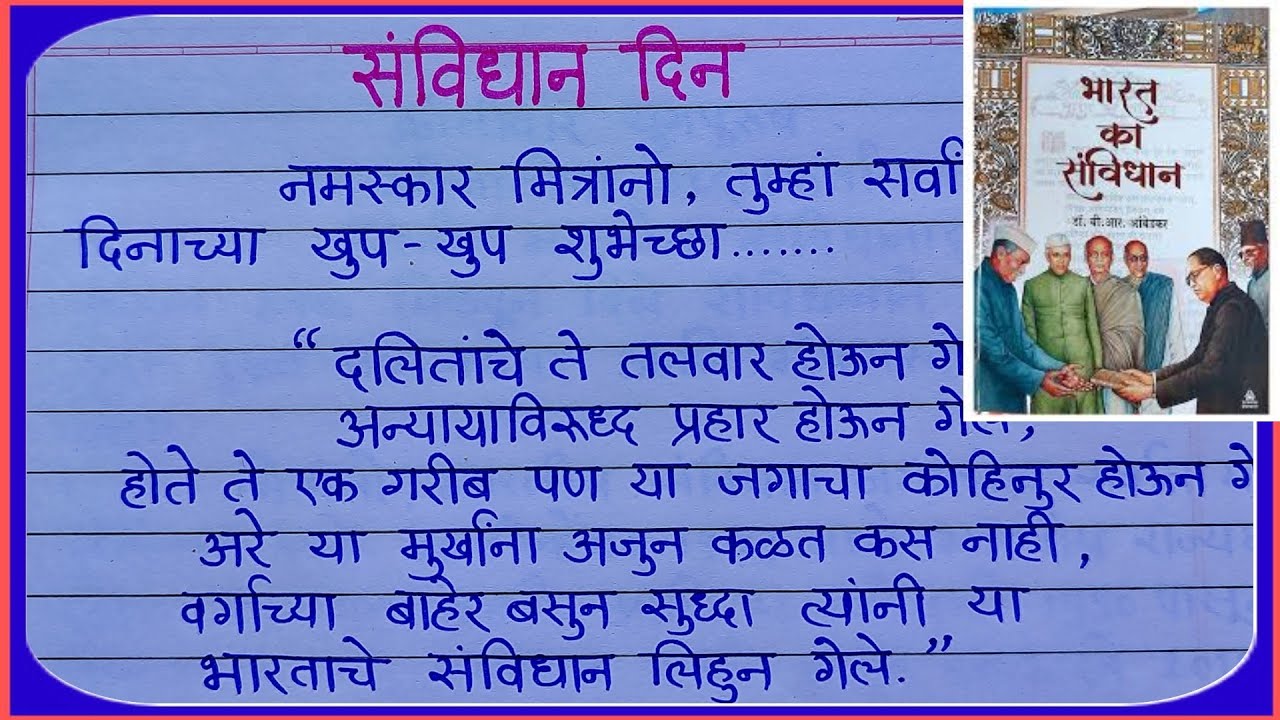 संविधान दिन
नमस्कार मित्रांनो, तुम्हां सर्वां
दिनाच्या खुप-खुप शुभेच्छा.......
“दलितांचे ते तलवार होऊन गे
अन्यायाविरूध्द प्रहार होऊन गेले,
होते ते एक गरीब पण या जगाचा कोहिनुर होऊन गे
अरे या मुर्खांना अजुन कळत कस नाही,
वर्गाच्या बाहेर बसुन सुध्दा त्यांनी या
भारताचे संविधान लिहुन गेले.”
भारत
का
संविधान
डॉ. बी. आर. आंबेडकर